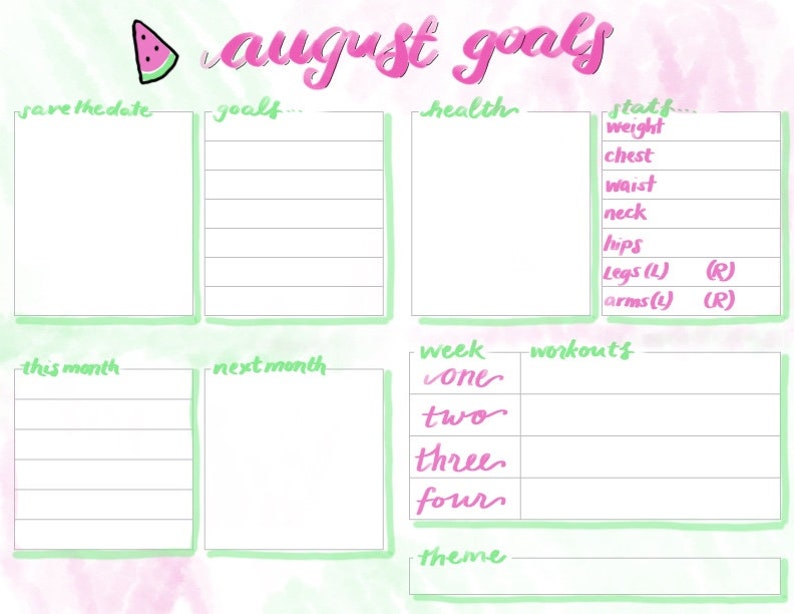 august goals
save the date
goals...
health
stats...
weight
chest
waist
neck
hips
Legs (L) (R)
arms (L) (R)
this month
next month
week
workouts
one
two
three
four
theme